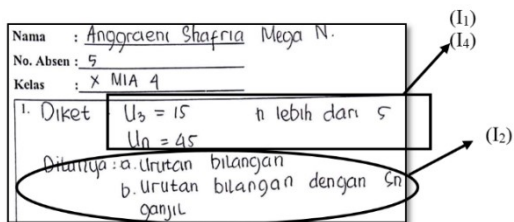 (I₁)
(I₄)
Nama : Anggraeni Shafria Mega N.
No. Absen : 5
Kelas : X MIA 4
1. Diket U₃ = 15 n lebih dari 5
Un = 45
Ditanya : a. Urutan bilangan
(I₂)
b. Urutan bilangan dengan Sn
ganjil